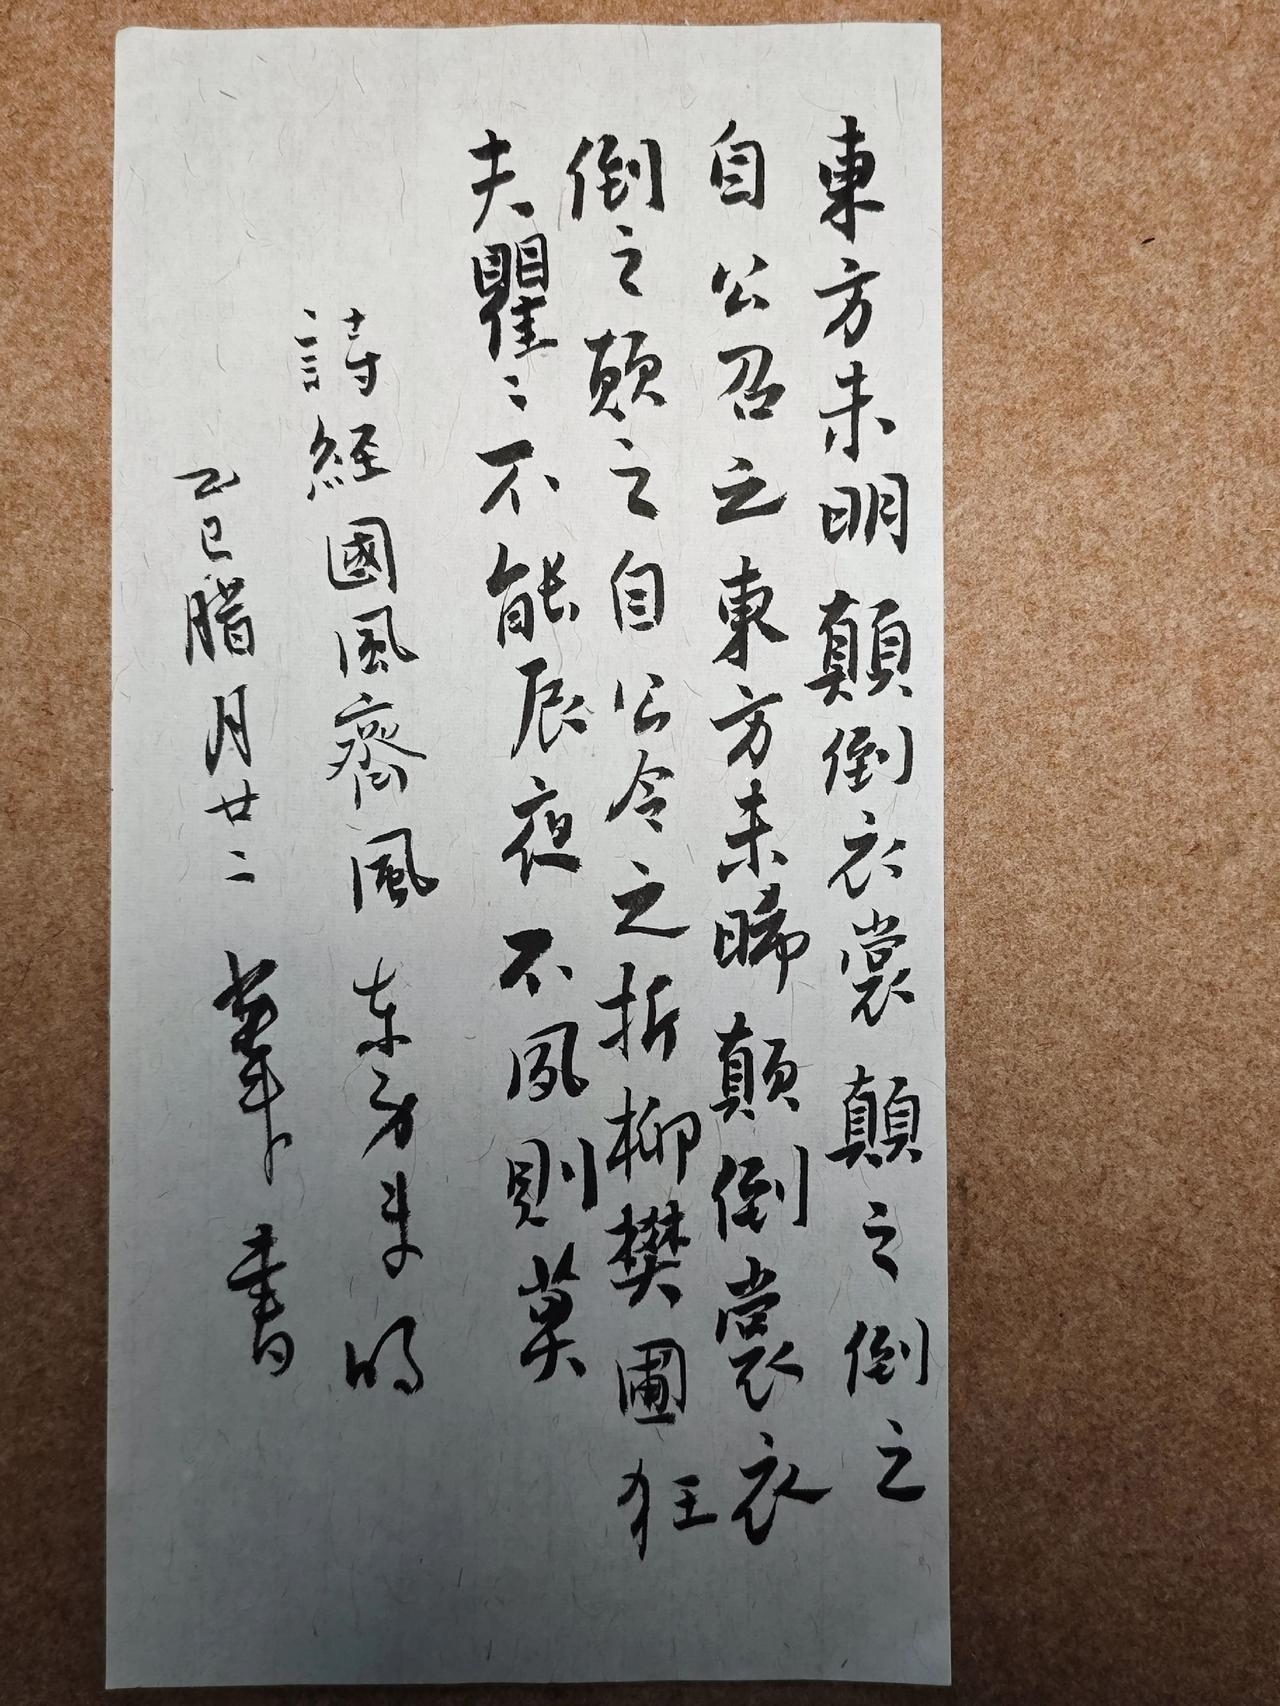 東方未明顛倒衣裳顛之倒之
自公召之東方未晞顛倒裳衣
倒之顛之自公令之折柳樊圃狂
夫瞿〻不能辰夜不夙則莫
詩經國風齊風东方未明
乙巳腊月廿二書